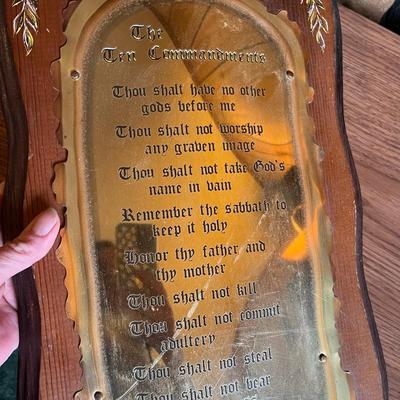 The
Ten Commandments
Thou shalt have no other
gods before me
Thou shalt not worship
any graven image
Thou shalt not take God's
name in vain
Remember the sabbath to
keep it holy
Honor thy father and
thy mother
Thou shalt not kill
Thou shalt not commit
adultery
Thou shalt not steal
Thou shalt not bear